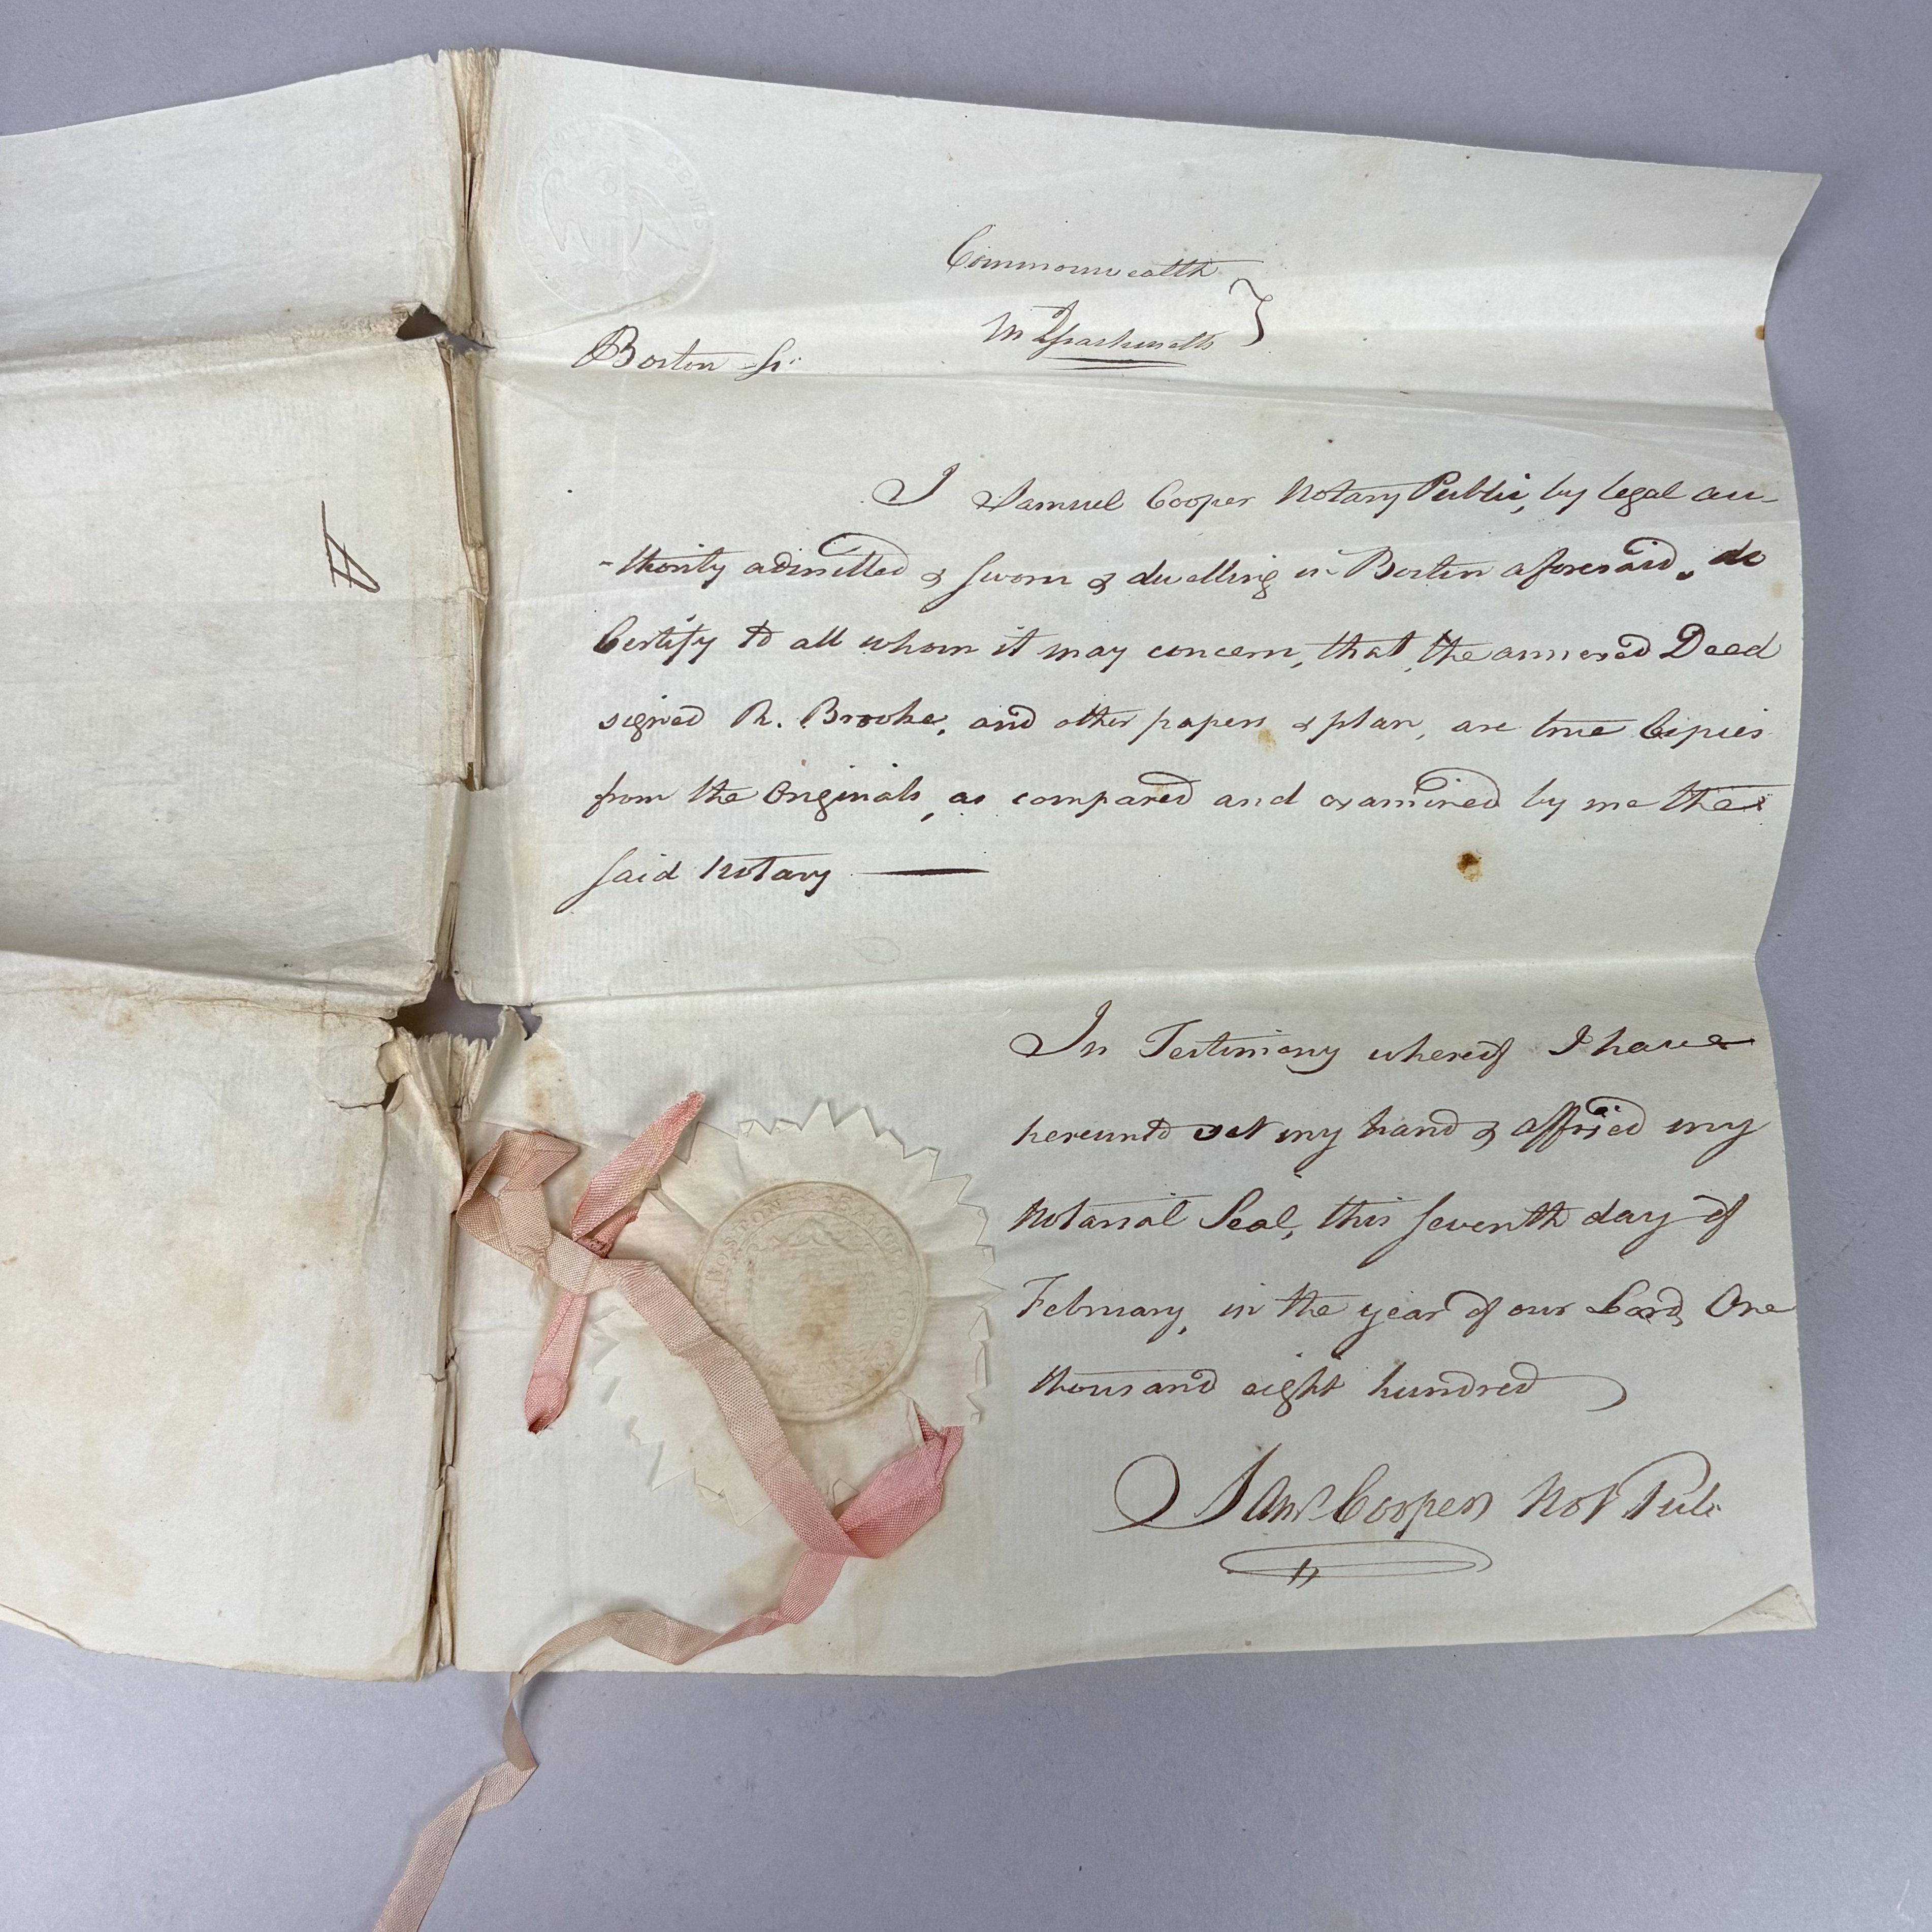 Commonwealth
of
Massachusetts }
Boston ss:
I Samuel Cooper Notary Public, by legal au-
-thority admitted & sworn & dwelling in Boston aforesaid, do
Certify to all whom it may concern, that, the annexed Deed
signed R. Brooke, and other papers & plan, are true Copies
from the Originals, as compared and examined by me the
said Notary —
In Testimony whereof I have
hereunto set my hand & affixed my
Notarial Seal, this seventh day of
February, in the year of our Lord, One
thousand eight hundred
Saml Cooper Not Pub: